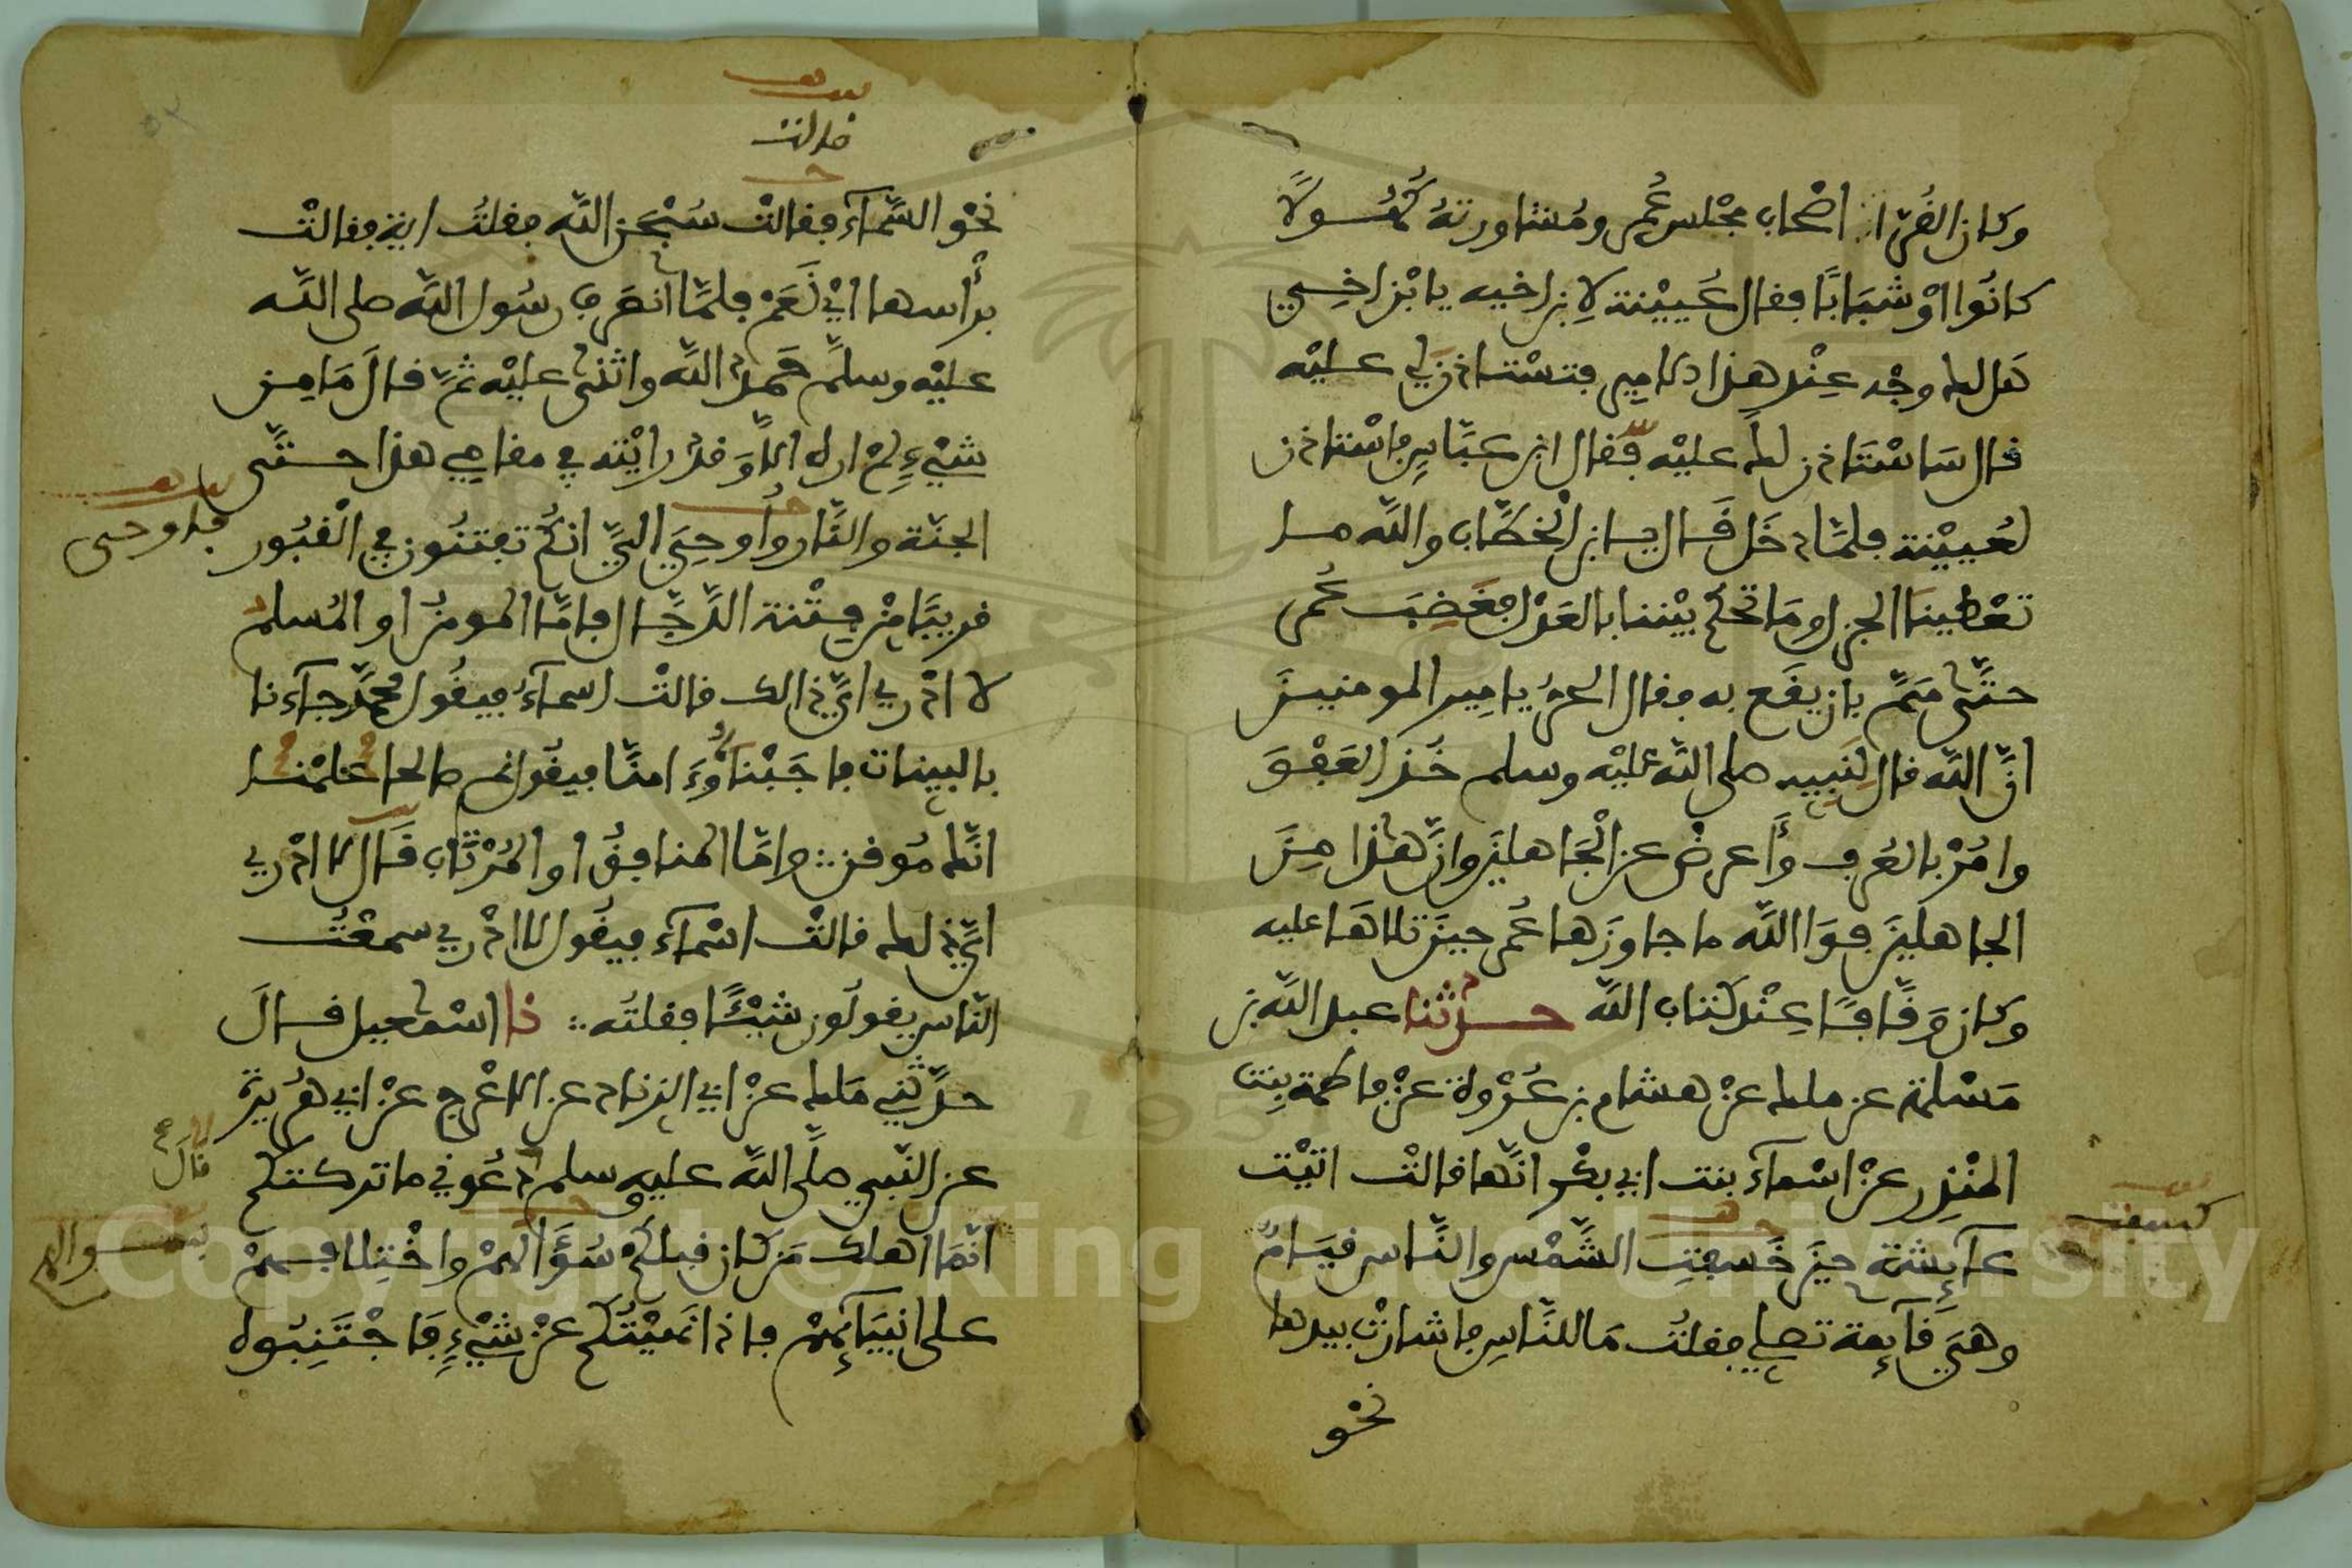 وكان القُرّاء اصْحاب مجْلس عُمر ومُشاورتهُ كُهُولاً
كانُوا اوْ شبَابًا فقال عُيَيْنة لاِبن اخيه يا بْن اخِي
هَل لك وجْه عِنْد هذا الامِير فتسْتاذن لي عليْه
قال سَاسْتَاذن لك عليْه فقال ابن عبَّاسٍ فاسْتاذن
لعُيَيْنة فلمَّا دخَل قَال يا ابن الْخطَّاب والله ما
تعْطينَا الجزل ومَا تحْكم بيْننا بالعَدْل فغَضِبَ عُمر
حتَّى همَّ بان يقَع به فقال الحرُّ يا امِير المومنينَ
انَّ الله قال لِنَبِيِّه صلى اللَّه عليْه وسلم خُذِ العَفْوَ
وامُرْ بالعُرفِ وَأَعرضْ عن الْجَاهلينَ وانَّ هذا مِنَ
الجاهلينَ فوَاللَّه ما جاوَزها عُمر حينَ تلاهَا عليه
وكان وقَّافًا عِنْد كتاب اللَّه حدثنا عبد اللَّه بن
مَسْلمة عن ملك عنْ هشام بن عُرْوة عنْ فاطمة بِنت
المنْذِر عنْ اسْماءَ بنت ابي بكْر انَّها قالتْ اتيْت
عآئشة حينَ خَسفتِ الشَّمْس والنَّاس قيَامٌ
وهيَ قآئمة تصلي فقلتُ مَا للنَّاسِ فاشارتْ بيدها
نحْو
كسفت
قالت
نحْو السَّمآء فقالتْ سُبْحٰن اللَّه فقلتُ اية فقالتْ
برأْسها ايْ نَعَمْ فلمَّا انصَرف رسُول اللَّه صلى اللَّه
عليْه وسلَّم حَمدَ اللَّه واثنى عليْه ثمَّ قالَ مَا مِن
شيْءٍ لمْ اره الاَّ وَقدْ رايْته في مقامِي هذا حتَّى
الجنّة والنَّار وأُوحِيَ اليَّ انكُم تفتنُون في الْقبُور
فاوحى
قريبًا منْ فِتْنة الدَّجَّال فامَّا المومنُ او المُسلم
لا ادْري ايَّ ذالك قالتْ اسمآءُ فيقُول محمَّد جآءنا
بالبينات فاجَبْناهُ وَءَامنَّا فيقُال نم صالحا علمْنا
انَّك مُوقن واَمَّا المنافقُ او المُرْتَاب قَال لا ادْري
ايَّ ذلك قالتْ اسْمآء فيقُول لا ادْري سمعْتُ
النَّاس يقولُون شيْـًٔا فقلتُه نا اسْمٰعيل قال
حدَّثنِي مَلك عنْ ابي الزناد عن الاعْرج عنْ ابي هُريرة
عن النَّبي صلَّى اللَّه عليه وسلم دعُوني ما تركتكم
قالَ
انَّمَا اهلك مَن كان قبلكُمْ سُؤَالهمْ واخْتِلافهمْ
بسـوالهم
على انبيَآئهمْ فاذا نَهيْتُكم عنْ شيْءٍ فَاجْتَنِبُوه
Copyright © King Saud University
1957